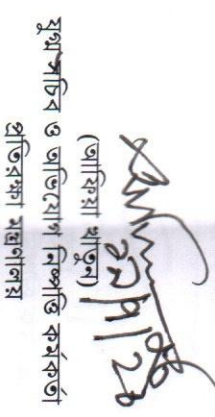 (আফিয়া খাতুন)
যুগ্মসচিব ও অভিযোগ নিষ্পত্তি কর্মকর্তা
প্রতিরক্ষা মন্ত্রণালয়